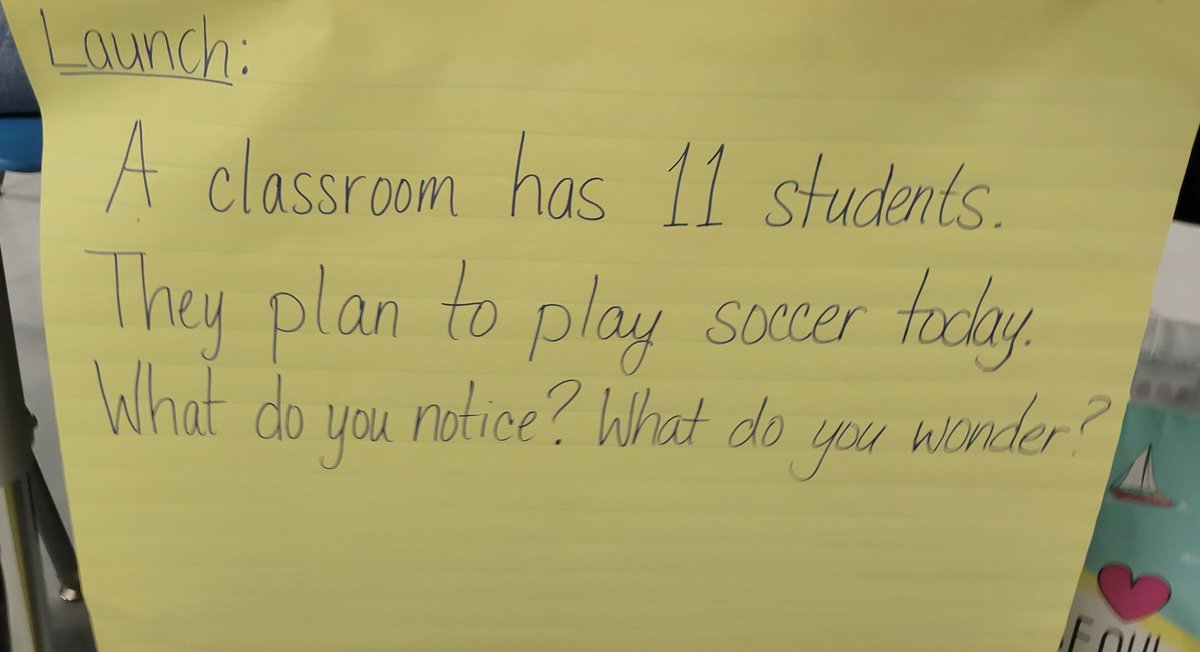 Launch:
A classroom has 11 students.
They plan to play soccer today.
What do you notice? What do you wonder?